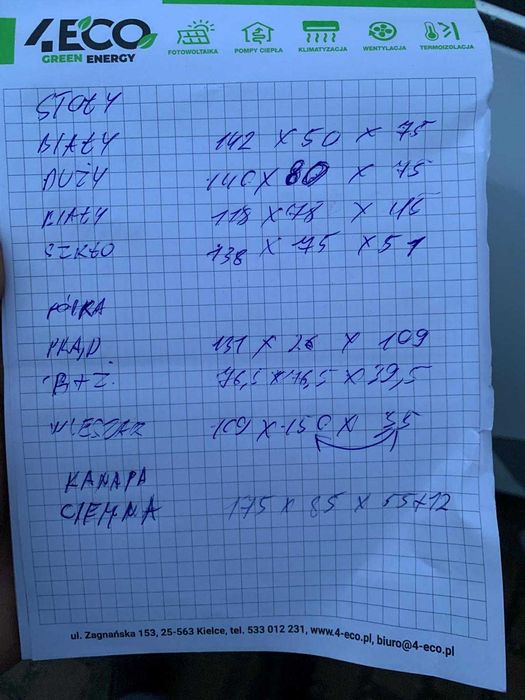 4ECO
GREEN ENERGY
FOTOWOLTAIKA
POMPY CIEPŁA
KLIMATYZACJA
WENTYLACJA
TERMOIZOLACJA
STOŁY
BIAŁY 142 X 50 X 75
DUŻY 140 X 80 X 75
BIAŁY 118 X 78 X 45
SZKŁO 138 X 75 X 51
PÓŁKA
PRĄD 131 X 26 X 109
76,5 X 76,5 X 39,5
WIESZAK 109 X 150 X 35
KANAPA
CIEMNA 175 X 85 X 55+12
ul. Zagnańska 153, 25-563 Kielce, tel. 533 012 231, www.4-eco.pl, biuro@4-eco.pl